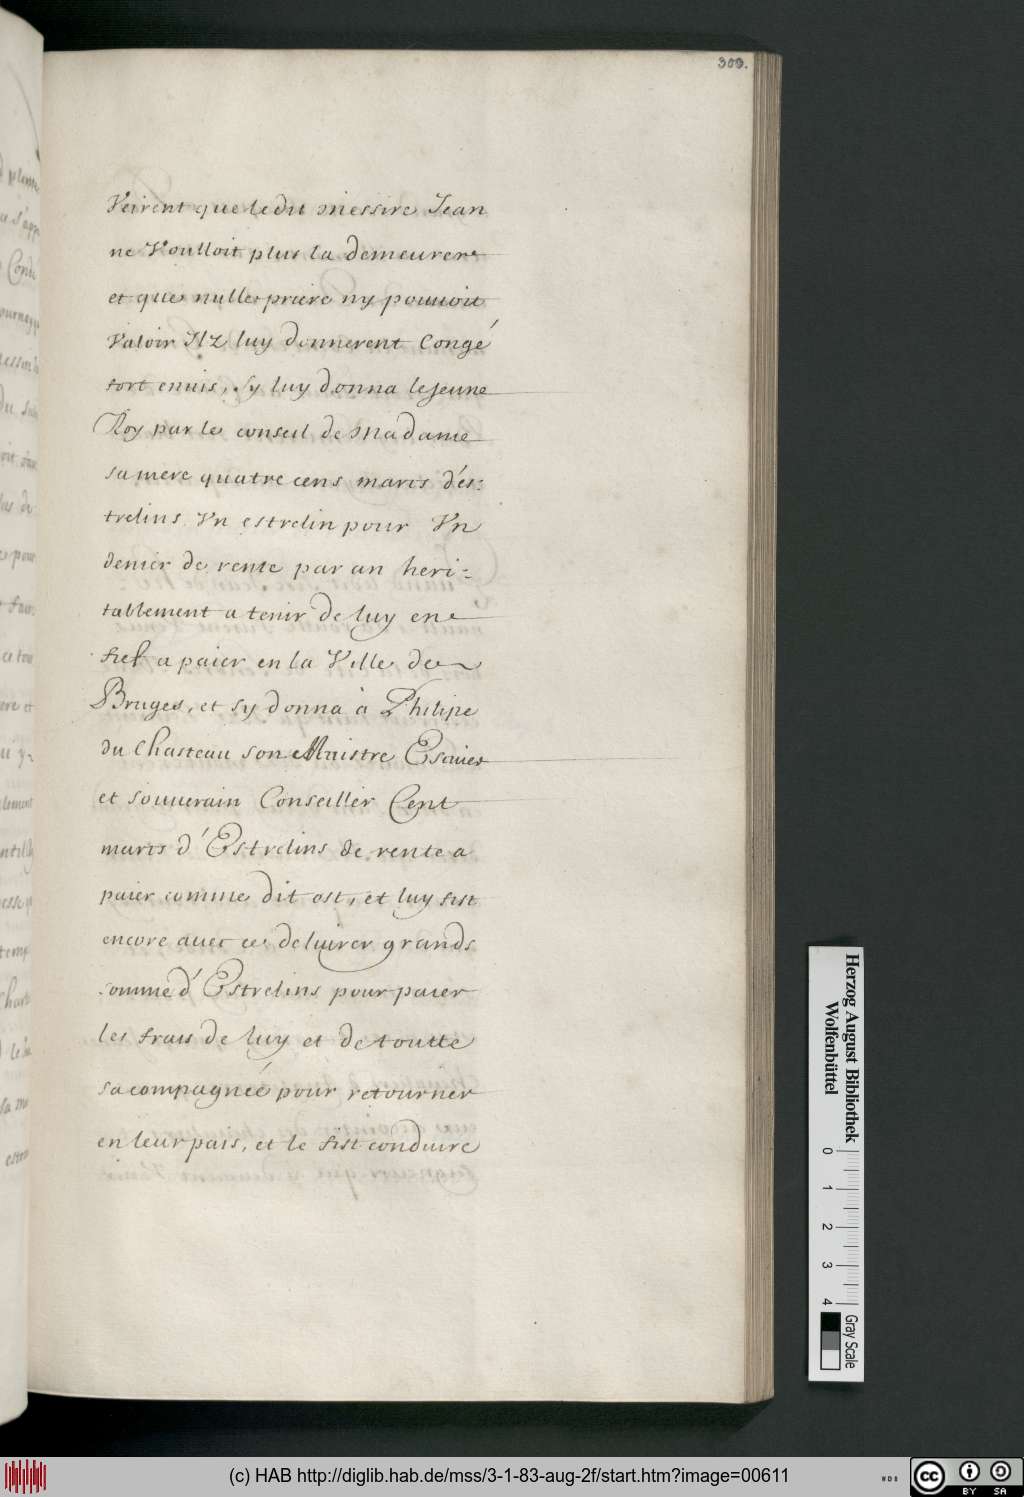 303.
Veirent que ledit messire Jean
ne Voulloit plus la demeurer
et que nulle priere ny pouuoit
Valoir Ilz luy donnerent Congé
fort enuis, Sy luy donna le jeune
Roy par le conseil de Madame
sa mere quatre cens marcs d'és:
trelins Vn estrelin pour Vn
denier de rente par an heri:
tablement a tenir de luy en
fief a paier en la Ville de
Bruges, et sy donna à Philipe
du Chasteau son Maistre Escuier
et souuerain Conseiller Cent
marcs d'Estrelins de rente a
paier comme dit ost, et luy fist
encore auec ce deluirer grands
somme d'Estrelins pour paier
les frais de luy et de toutte
sa compagnée pour retourner
en leur pais, et le fist conduire
Herzog August Bibliothek
Wolfenbüttel
0 1 2 3 4
Gray Scale
(c) HAB http://diglib.hab.de/mss/3-1-83-aug-2f/start.htm?image=00611
cc BY SA